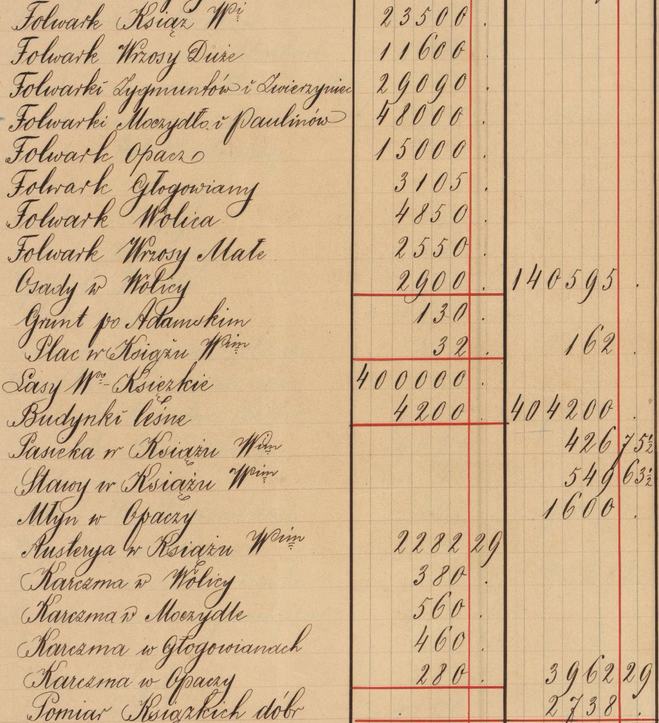 Folwark Książ Wi 23500 .
Folwark Wrzosy Duże 11600 .
Folwarki Zygmuntów i Zwierzyniec 29090 .
Folwarki Moczydło i Paulinów 48000 .
Folwark Opacz 15000 .
Folwark Głogowiany 3105 .
Folwark Wolica 4850 .
Folwark Wrzosy Małe 2550 .
Osady w Wolicy 2900 . 140595 .
Grunt po Adamskim 130 .
Plac w Książu Wim 32 . 162 .
Lasy Wo Ksiezkie 400000 .
Budynki leśne 4200 . 404200 .
Pasieka w Książu Wim 426 75½
Stawy w Książu Wim 549 63½
Młyn w Opaczy 1600 .
Austerya w Książu Wim 2282 29
Karczma w Wolicy 380 .
Karczma w Moczydle 560 .
Karczma w Głogowianach 460 .
Karczma w Opaczy 280 . 3962 29
Pomiar Książkich dóbr . 2738 .